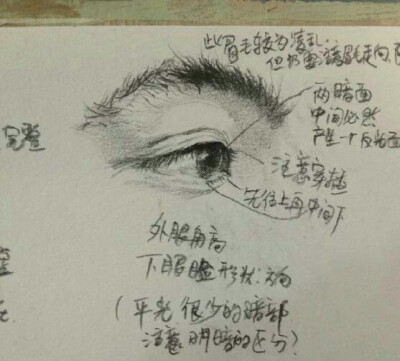 此眉毛较为凌乱
但仍要注意毛走向
两暗面
中间必然
产生一个反光面
完整
注意穿插
先往上再中间下
外眼角高
下眼睑形状.方向
(平光 很少的暗部
注意明暗的区分)